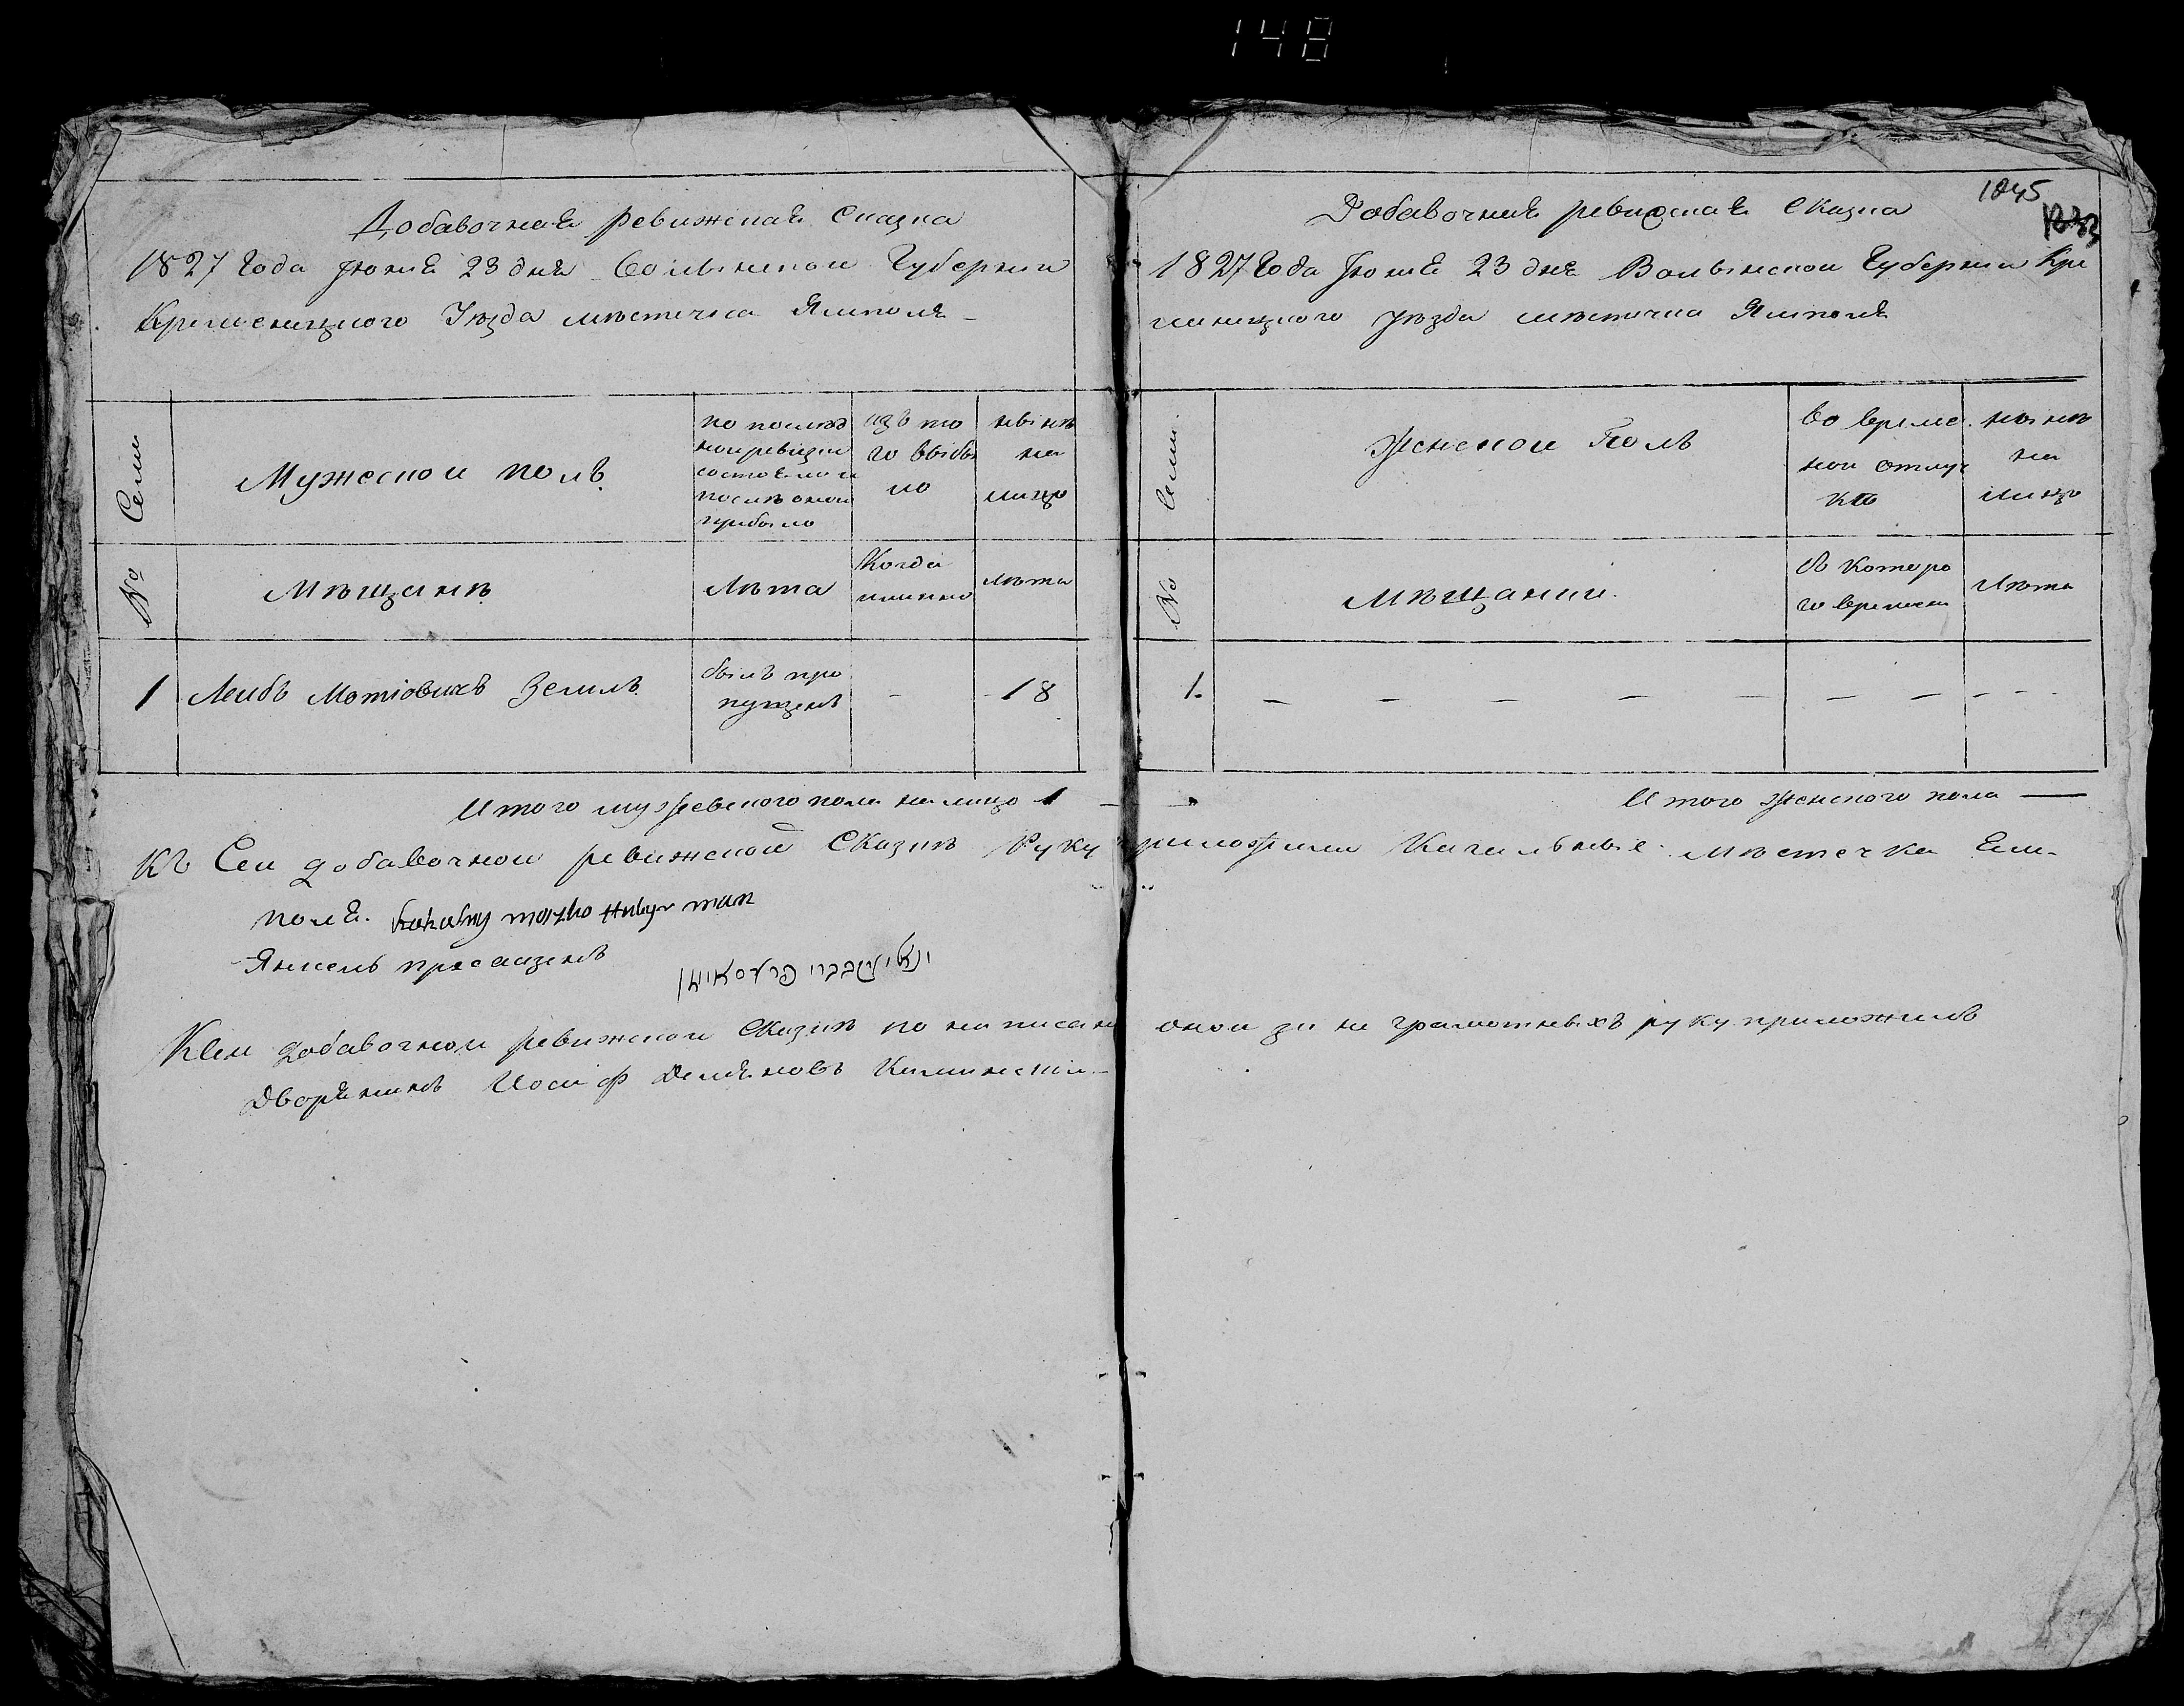 148
Добавочная ревижская Сказка
1827 Года Июня 23 дня Волынской Губернии
Кременецкого Уезда местечка Ямполя
Семи
Мужеской полъ
по послед
ней ревизии
состояло и
после оной
прибыло
изъ то
го выбы
ло
ныне
на
лицо
№
Мещане
Лета
Когда
именно
лета
1 Лейбъ Мотіовичъ Земель
былъ про
пущенъ
-
18
Итого мужевского пола на лицо 1
1045
Добавочная ревизская Сказка
1827 Года Июня 23 дня Волынской Губернии Кре
менецкого уезда местечка Ямполя
Семи
Женской Полъ
во време
ной отлуч
ке
ныне
на
лицо
№
Мещании
съ которо
го времени
Лета
1. – – – – – – – – –
Итого женского пола —
Къ Сей добавочной ревижской Сказке Руку приложили Кагальные местечка Ям-
поля.
Янкель
Ксей добавочной ревижской Сказке по написани оной за не грамотныхъ руку приложилъ
Дворянинъ Иосиф